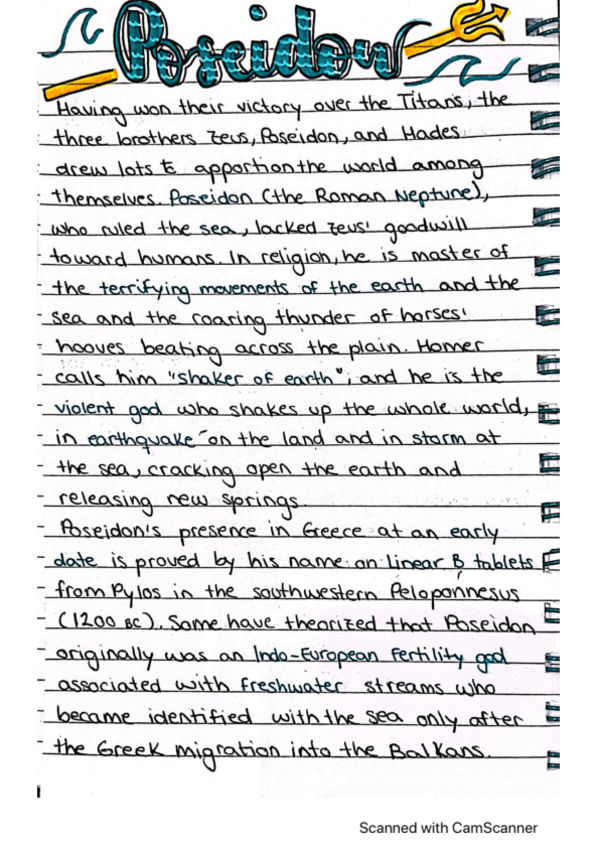 Poseidon
Having won their victory over the Titans, the
three brothers Zeus, Poseidon, and Hades
drew lots to apportion the world among
themselves. Poseidon (the Roman Neptune),
who ruled the sea, lacked Zeus' goodwill
toward humans. In religion, he is master of
the terrifying movements of the earth and the
sea and the roaring thunder of horses'
hooves beating across the plain. Homer
calls him "shaker of earth", and he is the
violent god who shakes up the whole world,
in earthquake on the land and in storm at
the sea, cracking open the earth and
releasing new springs.
Poseidon's presence in Greece at an early
date is proved by his name on Linear B tablets
from Pylos in the southwestern Peloponnesus
(1200 BC). Some have theorized that Poseidon
originally was an Indo-European fertility god
associated with freshwater streams who
became identified with the sea only after
the Greek migration into the Balkans.
Scanned with CamScanner